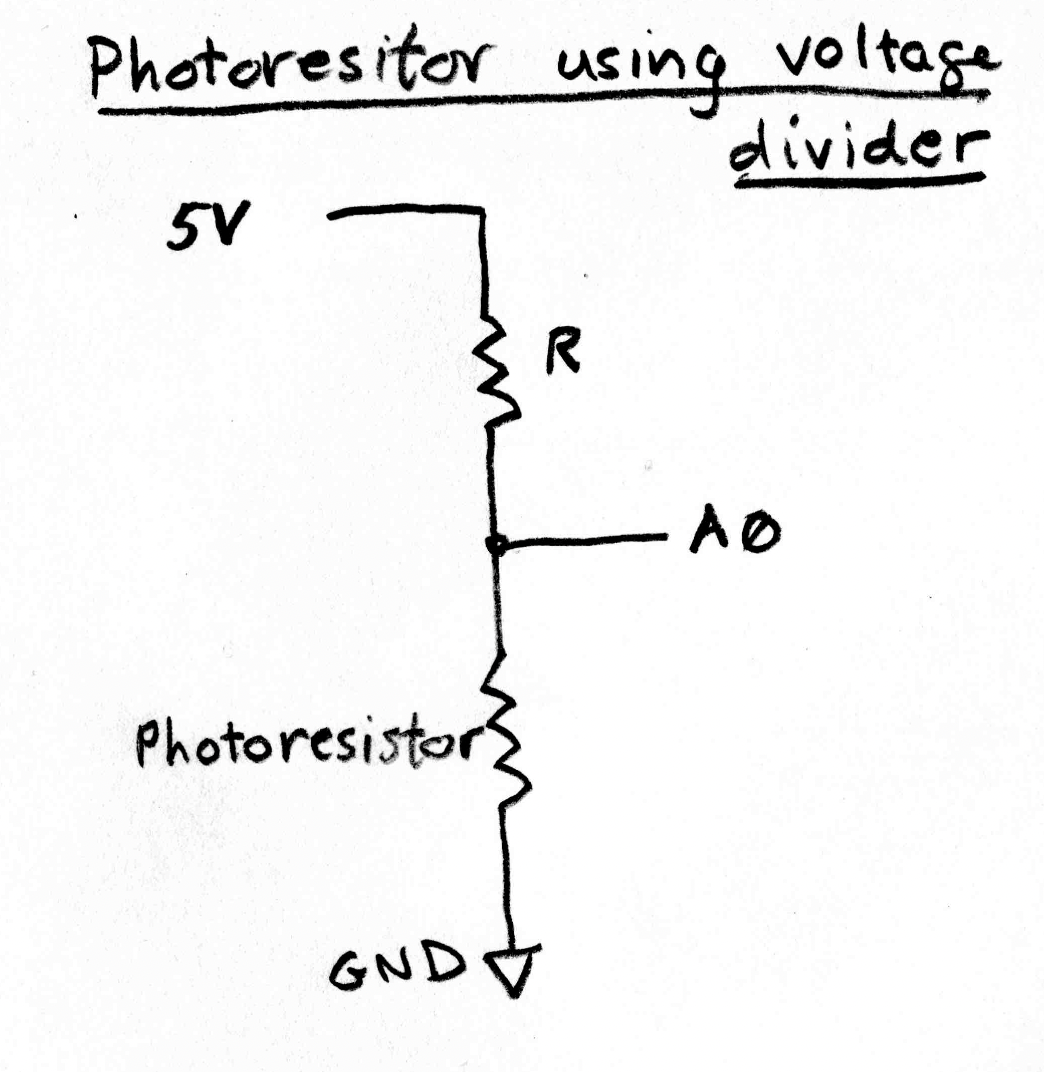 Photoresitor using voltage
divider
5V
R
A0
Photoresistor
GND